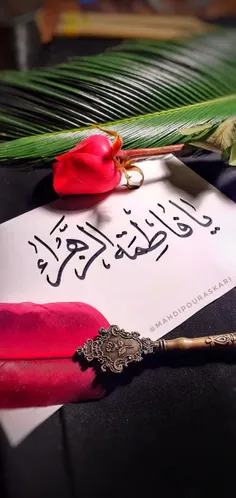 يا فاطمة الزهراء
@MAHDIPOURASKARI